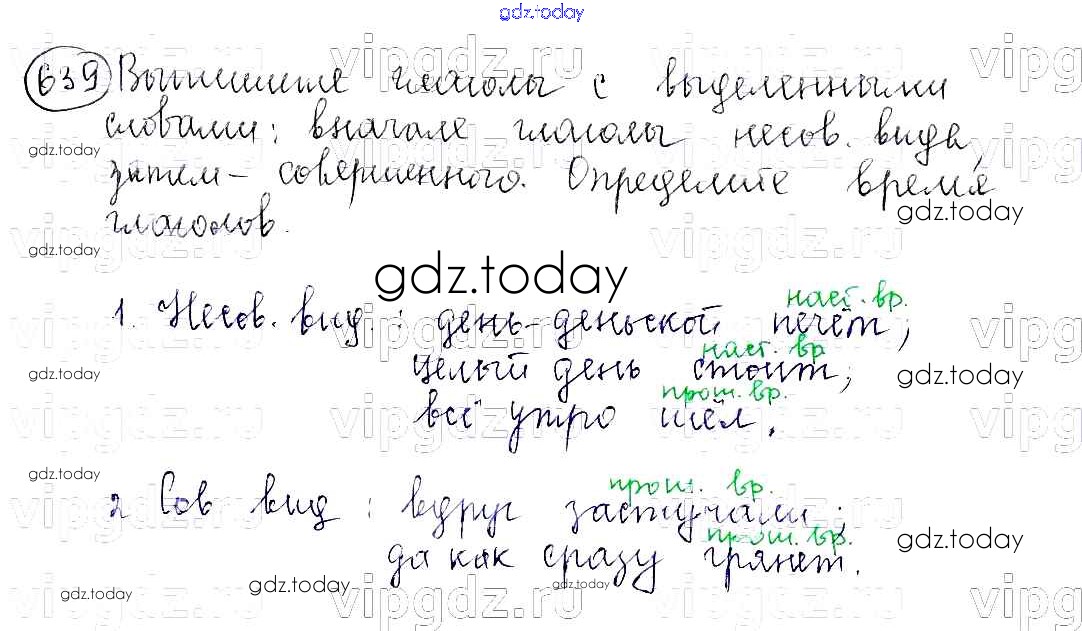 gdz.today
639 Выпишите глаголы с выделенными
словами: вначале глаголы несов. вида,
затем – совершенного. Определите время
глаголов.
gdz.today
наст. вр.
1. Несов. вид : день-деньской печёт;
наст. вр
целый день стоит;
прош. вр.
всё утро шёл.
прош. вр.
2 Сов вид : вдруг застучали;
прош. вр.
да как сразу грянет.
gdz.today
vipgdz.ru